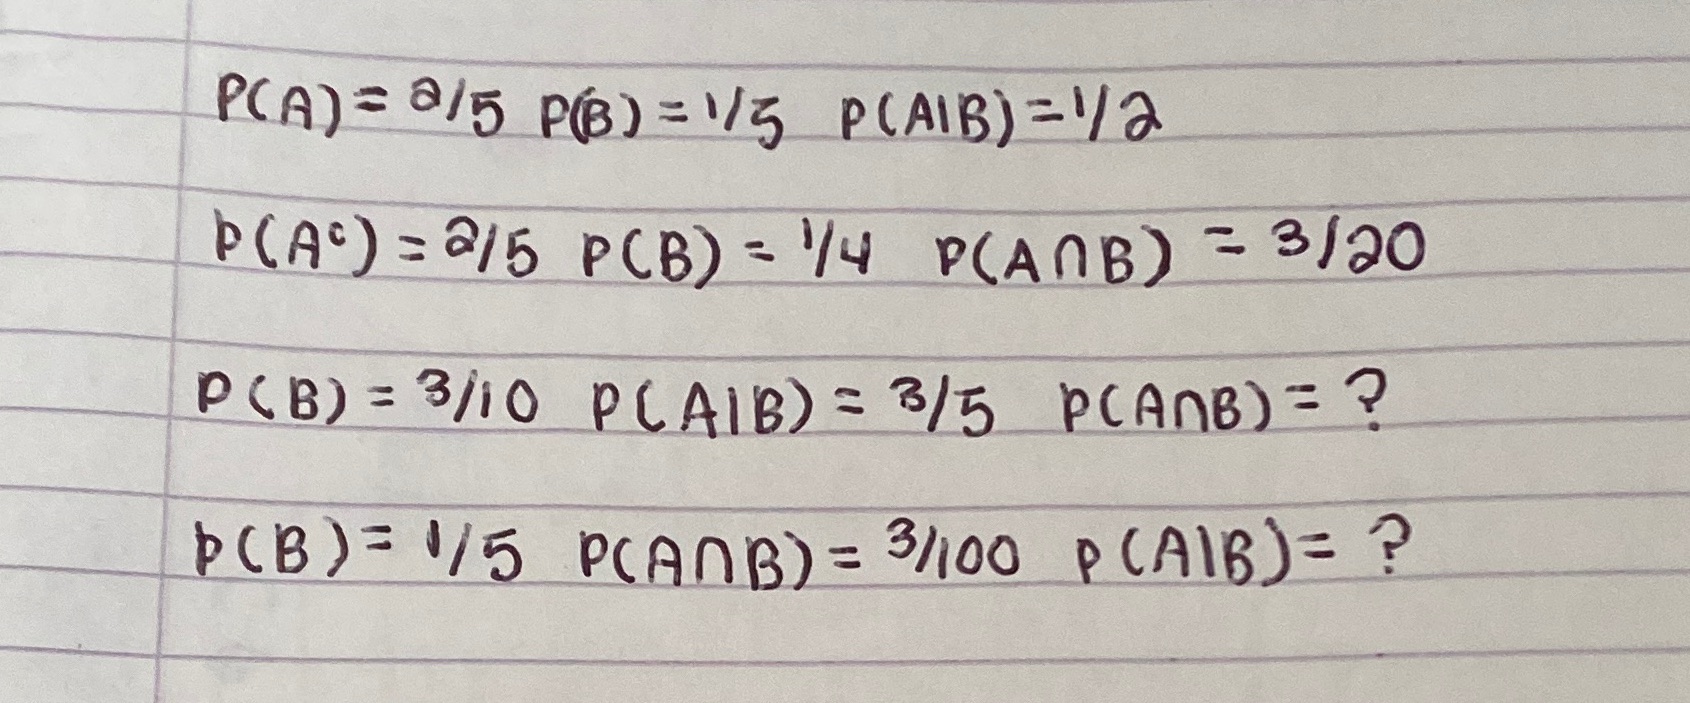 P(A) = 2/5 P(B) = 1/5 P(A|B) = 1/2
P(Aᶜ) = 2/5 P(B) = 1/4 P(A∩B) = 3/20
P(B) = 3/10 P(A|B) = 3/5 P(A∩B) = ?
P(B) = 1/5 P(A∩B) = 3/100 P(A|B) = ?